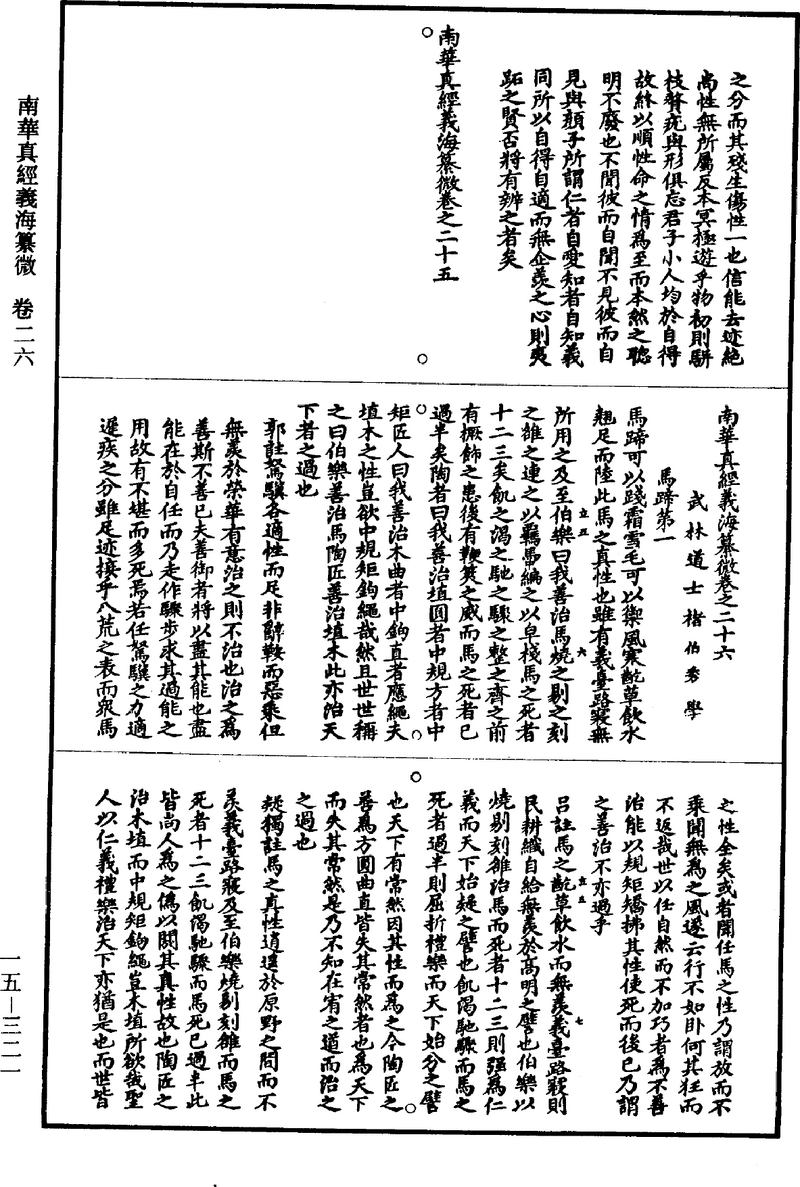 南華真經義海纂微 卷二六
一五—三二一
之分而其殘生傷性一也信能去迹絕
尚性無所屬反本冥極遊乎物初則駢
枝贅疣與形俱忘君子小人均於自得
故終以順性命之情為至而本然之聰
明不廢也不聞彼而自聞不見彼而自
見與顏子所謂仁者自愛知者自知義
同所以自得自適而無企羨之心則夷
跖之賢否將有辨之者矣
南華真經義海纂微卷之二十五
南華真經義海纂微卷之二十六
武林道士褚伯秀學
馬蹄第一
馬蹄可以踐霜雪毛可以禦風寒齕草飲水
翹足而陸此馬之真性也雖有義臺路寢無
所用之及至伯樂曰我善治馬燒之剔之刻
之雒之連之以羈馽編之以皁棧馬之死者
十二三矣飢之渴之馳之驟之整之齊之前
有橛飾之患後有鞭筴之威而馬之死者已
過半矣陶者曰我善治埴圓者中規方者中
矩匠人曰我善治木曲者中鉤直者應繩夫
埴木之性豈欲中規矩鉤繩哉然且世世稱
之曰伯樂善治馬陶匠善治埴木此亦治天
下者之過也
郭註駑驥各適性而足非辭鞍而惡乘但
無羨於榮華有意治之則不治也治之為
善斯不善已夫善御者將以盡其能也盡
能在於自任而乃走作驟步求其過能之
用故有不堪而多死焉若任駑驥之力適
遲疾之分雖足迹接乎八荒之表而衆馬
之性全矣或者聞任馬之性乃謂放而不
乘聞無為之風遂云行不如卧何其狂而
不返哉世以任自然而不加巧者為不善
治能以規矩矯拂其性使死而後已乃謂
之善治不亦過乎
呂註馬之齕草飲水而無羨義臺路寢則
民耕織自給無羨於高明之譬也伯樂以
燒剔刻雒治馬而死者十二三則強為仁
義而天下始疑之譬也飢渴馳驟而馬之
死者過半則屈折禮樂而天下始分之譬
也天下有常然因其性而為之今陶匠之
善為方圓曲直皆失其常然者也為天下
而失其常然是乃不知在宥之道而治之
之過也
疑獨註馬之真性逍遥於原野之間而不
羨義臺路寢及至伯樂燒剔刻雒而馬之
死者十二三飢渴馳驟而馬死已過半此
皆尚人為之偽以闕其真性故也陶匠之
治木埴而中規矩鉤繩豈木埴所欲哉聖
人以仁義禮樂治天下亦猶是也而世皆